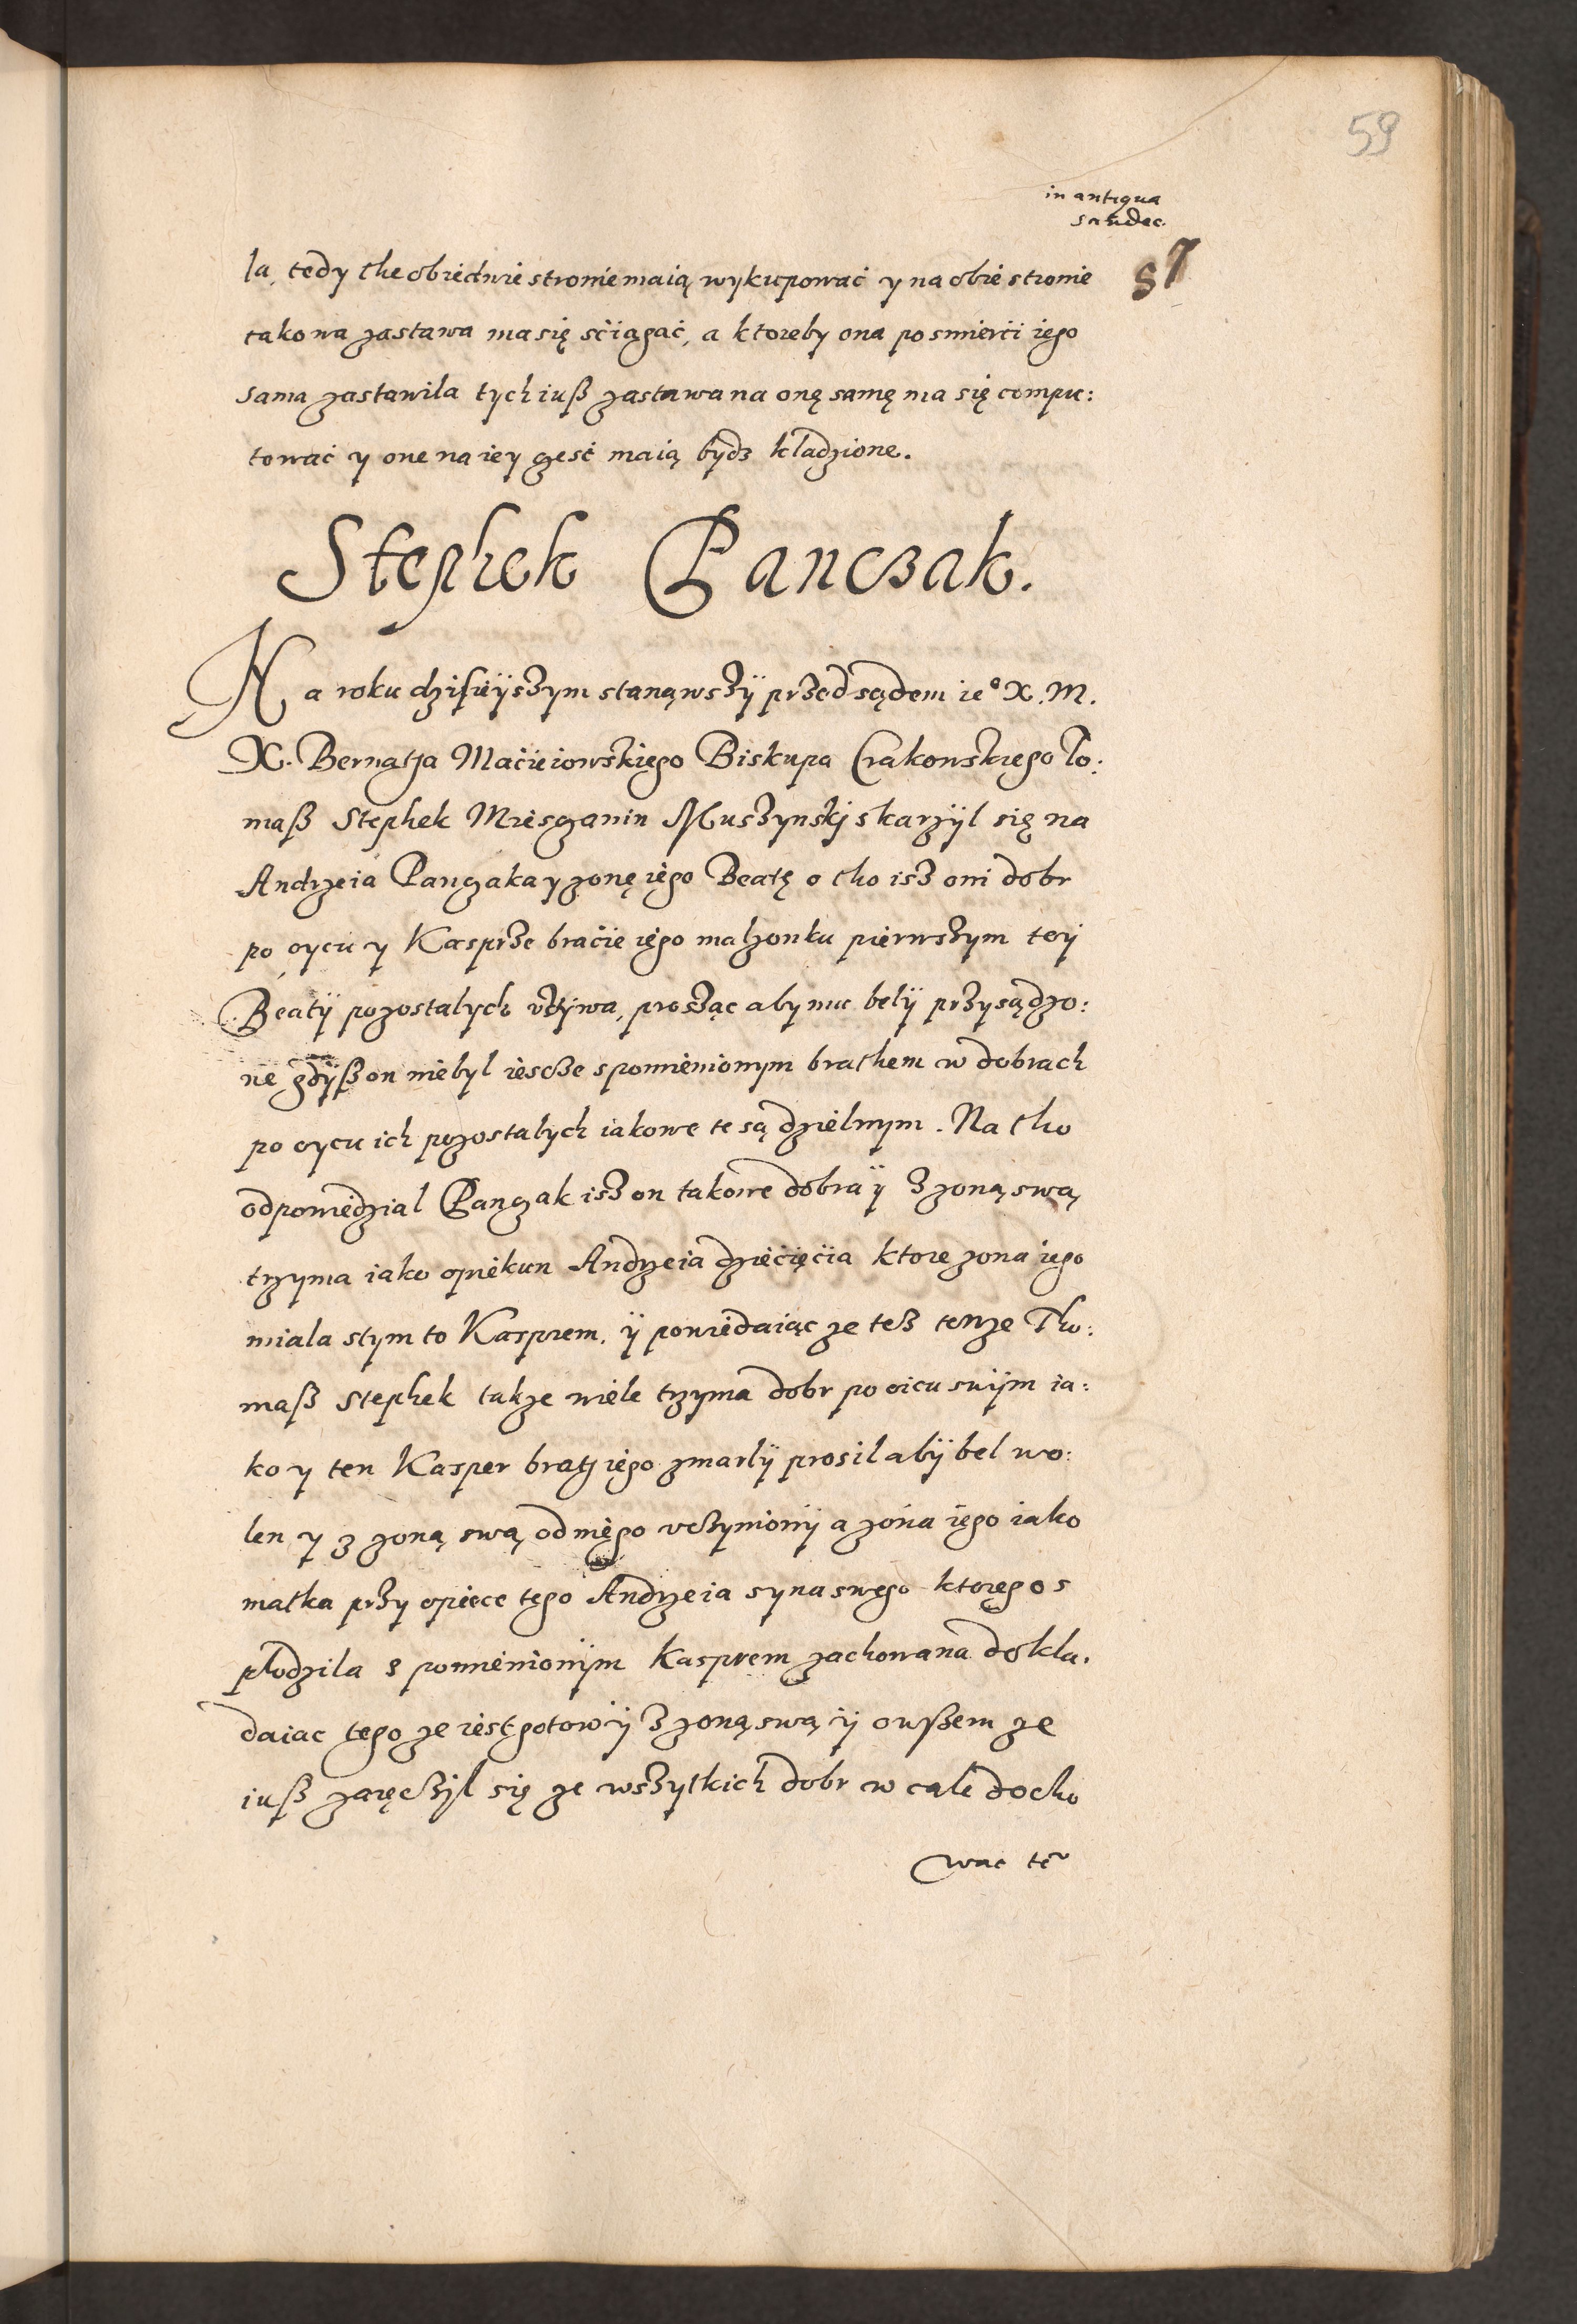 59
in antiqua
sandec.
87
la, tedy the obiedwie stronie maią wykupować y na obie stronie
takowa zastawa ma się sciągać, a ktoreby ona po smierći iego
sama zastawila tych iuß zastawa na onę samę ma się compu:
tować y one na iey gesć maią bydz kładzione.
Stephek Panczak.
Na roku dzisieÿszym stanąwszÿ przed sądem ieº X. M.
X. Bernatha Macieiowskiego Biskupa Crakowskiego To:
maß Stephek Miesczanin Muszynskj skarzÿl się na
Andrzeia Panczaka y zonę iego Beatę o tho isz oni dobr
po oycu y Kasprze bracie iego malzonku pierwszym teÿ
Beatÿ pozostalych vżÿwa, prosząc aby mu belÿ przysądzo:
ne gdÿß on niebyl iescze spomienionym brathem w dobrach
po oycu ich pozostalych iakowe te są dzielnym. Na tho
odpowiedzial Panczak isz on takowe dobra ÿ z zoną swą
trzyma iako opiekun Andrzeia dziecięcia ktore zona iego
miala s tym to Kasprem. ÿ powiedaiąc ze tesz tenze Tho:
maß Stephek takze wiele trzyma dobr po oicu swÿm ia:
ko y ten Kasper bratj iego zmarlÿ prosil abÿ bel wo:
len y z zoną swą od niego vczynionÿ a zona iego iako
matka przy opiece tego Andrzeia syna swego ktorego s
płodzila s pomienionÿm Kasprem zachowana dokla:
daiac tego ze iest gotowÿ z zoną swą ÿ owßem ze
iuß zaręczÿl się ze wszytkich dobr w cale docho
wac te